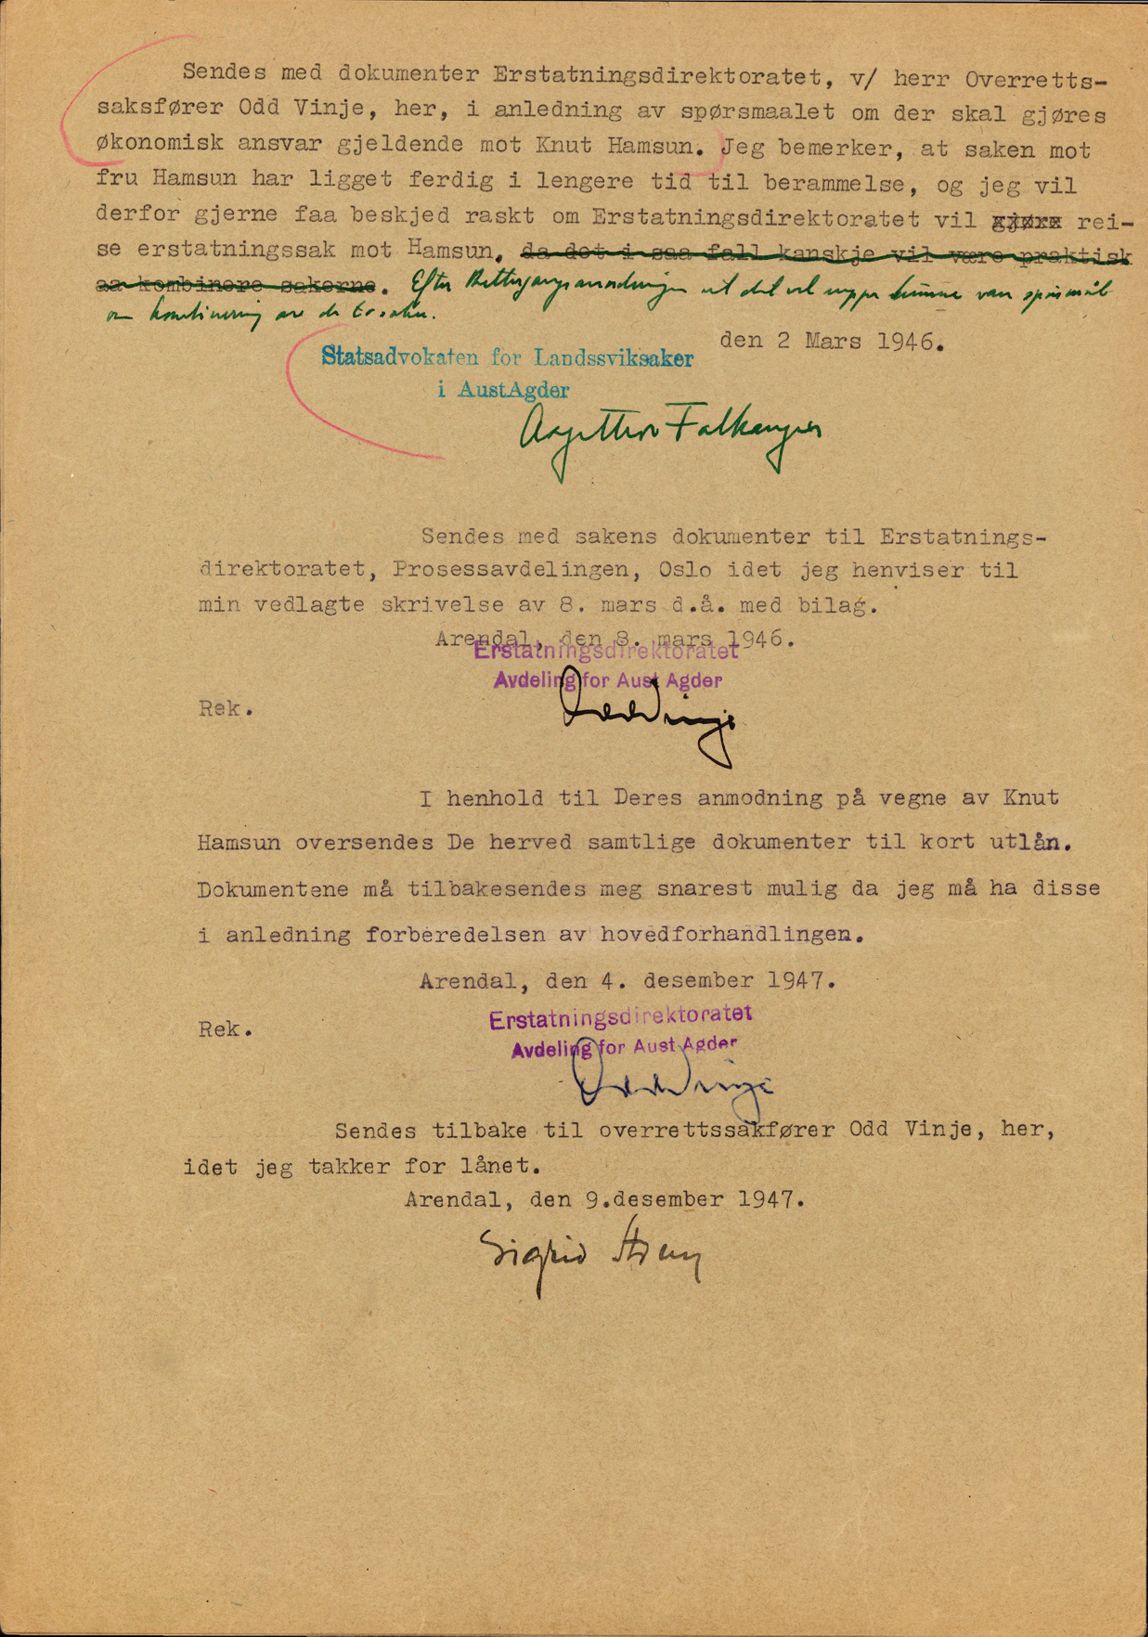 Sendes med dokumenter Erstatningsdirektoratet, v/ herr Overretts-
saksfører Odd Vinje, her, i anledning av spørsmaalet om der skal gjøres
økonomisk ansvar gjeldende mot Knut Hamsun. Jeg bemerker, at saken mot
fru Hamsun har ligget ferdig i lengere tid til berammelse, og jeg vil
derfor gjerne faa beskjed raskt om Erstatningsdirektoratet vil gjøre rei-
se erstatningssak mot Hamsun. da det i saa fall kanskje vil være praktisk
aa kombinere sakerne. Efter Rettergangsanordningen vil det vel neppe kunne være spørsmål
om kombinering av de to saker.
den 2 Mars 1946.
Statsadvokaten for Landssviksaker
i AustAgder
Falkanger
Sendes med sakens dokumenter til Erstatnings-
direktoratet, Prosessavdelingen, Oslo idet jeg henviser til
min vedlagte skrivelse av 8. mars d.å. med bilag.
Arendal, den 8. mars 1946.
Erstatningsdirektoratet
Avdeling for Aust Agder
Rek.
Odd Vinje
I henhold til Deres anmodning på vegne av Knut
Hamsun oversendes De herved samtlige dokumenter til kort utlån.
Dokumentene må tilbakesendes meg snarest mulig da jeg må ha disse
i anledning forberedelsen av hovedforhandlingen.
Arendal, den 4. desember 1947.
Erstatningsdirektoratet
Rek.
Avdeling for Aust Agder
Odd Vinje
Sendes tilbake til overrettssakfører Odd Vinje, her,
idet jeg takker for lånet.
Arendal, den 9.desember 1947.
Sigrid Stray